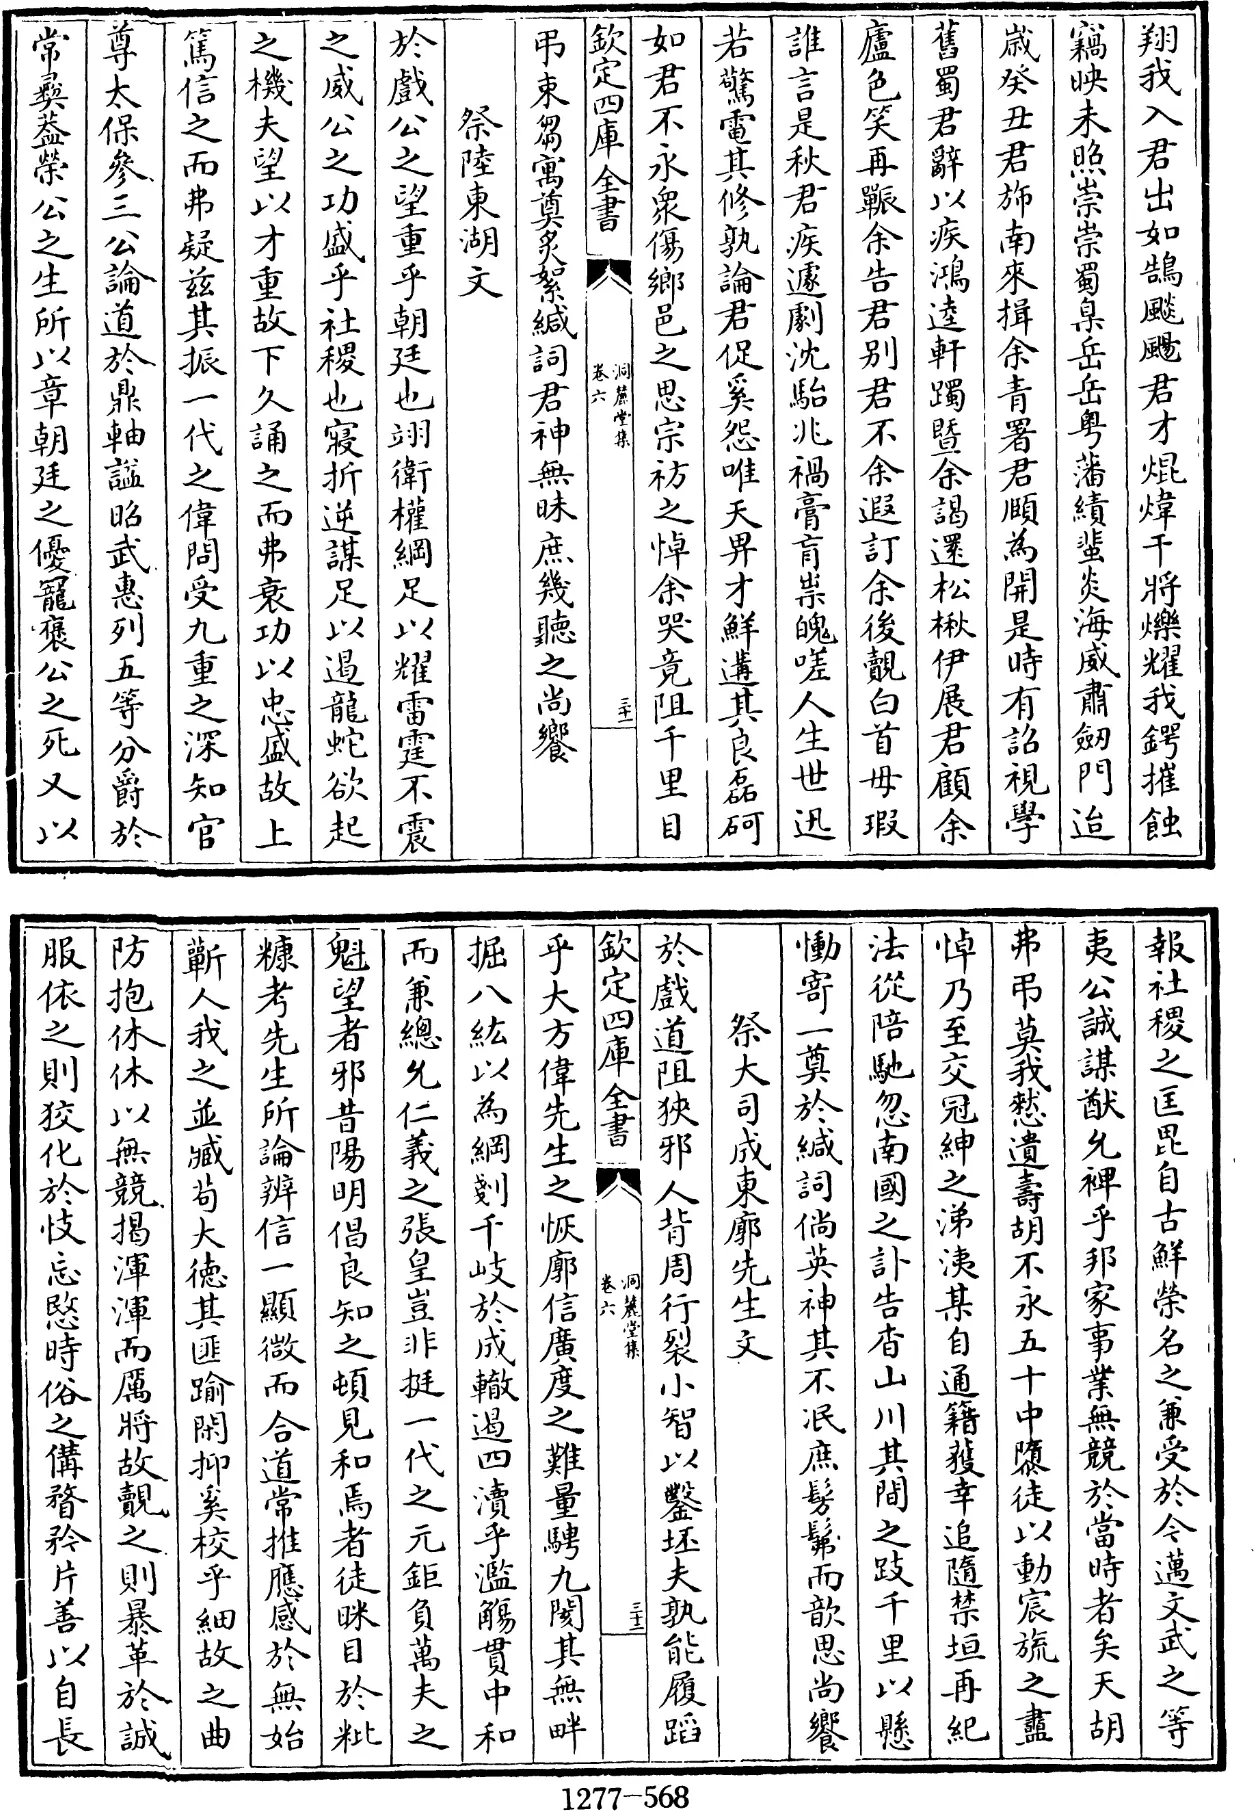 翔我入君出如鵠颷颺君才焜煒干將爍耀我鍔摧蝕
竊映末照崇崇蜀臬岳岳粵藩績蜚炎海威肅劒門迨
歲癸丑君斾南來揖余青署君頤為開是時有詔視學
舊蜀君辭以疾鴻逵軒躅暨余謁還松楸伊展君顧余
廬色笑再囅余告君别君不余遐訂余後覿白首毋瑕
誰言是秋君疾遽劇沈駘兆禍膏肓祟魄嗟人生世迅
若驚電其修孰論君促奚怨唯天畀才鮮遘其良磊砢
如君不永衆傷鄉邑之思宗祊之悼余哭竟阻千里目
欽定四庫全書
洞麓堂集
卷六
三十一
弔束芻寓奠炙絮緘詞君神無昧庶幾聽之尚饗
祭陸東湖文
於戲公之望重乎朝廷也翊衛權綱足以耀雷霆不震
之威公之功盛乎社稷也寢折逆謀足以遏龍蛇欲起
之機夫望以才重故下久誦之而弗衰功以忠盛故上
篤信之而弗疑兹其振一代之偉問受九重之深知官
尊太保參三公論道於鼎軸謚昭武惠列五等分爵於
常彝葢榮公之生所以章朝廷之優寵褒公之死又以
報社稷之匡毘自古鮮榮名之兼受於今邁文武之等
夷公誠謀猷允裨乎邦家事業無競於當時者矣天胡
弗弔莫我憖遺壽胡不永五十中隳徒以動宸旒之衋
悼乃至交冠紳之涕洟某自通籍獲幸追隨禁垣再紀
法從陪馳忽南國之訃告杳山川其間之跂千里以懸
慟寄一奠於緘詞倘英神其不泯庶髣髴而歆思尚饗
祭大司成東廓先生文
於戲道阻狹邪人背周行裂小智以鑿坯夫孰能履蹈
欽定四庫全書
洞麓堂集
卷六
三十二
乎大方偉先生之恢廓信廣度之難量騁九閡其無畔
掘八紘以為綱剗千岐於成轍遏四瀆乎濫觴貫中和
而兼總允仁義之張皇豈非挺一代之元鉅負萬夫之
魁望者邪昔陽明倡良知之頓見和焉者徒眯目於粃
糠考先生所論辨信一顯微而合道常推應感於無始
蘄人我之並臧苟大德其匪踰閑抑奚校乎細故之曲
防抱休休以無競揭渾渾而厲將故覿之則暴革於誠
服依之則狡化於忮忘愍時俗之傋瞀矜片善以自長
1277-568